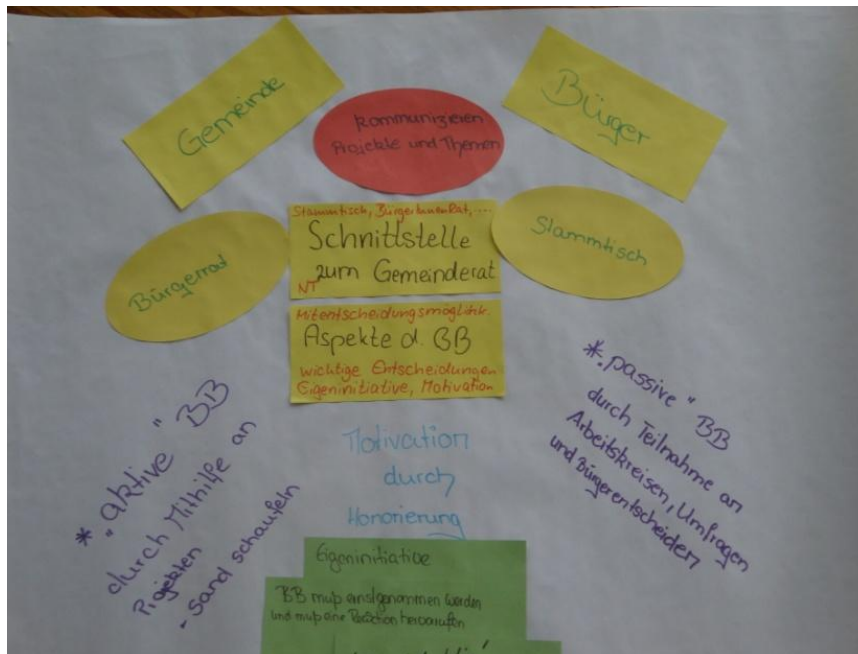 Gemeinde
kommunizieren
Projekte und Themen
Bürger
Bürgerrat
Stammtisch, BürgerInnenRat, ....
Schnittstelle
zum Gemeinderat
NT
Stammtisch
Mitentscheidungsmöglichk.
Aspekte d. BB
wichtige Entscheidungen
Eigeninitiative, Motivation
* "aktive" BB
durch Mithilfe an
Projekten
- Sand schaufeln
* "passive" BB
durch Teilnahme an
Arbeitskreisen, Umfragen
und Bürgerentscheiden
Motivation
durch
Honorierung
Eigeninitiative
BB muß ernstgenommen werden
und muß eine Reaktion hervorrufen